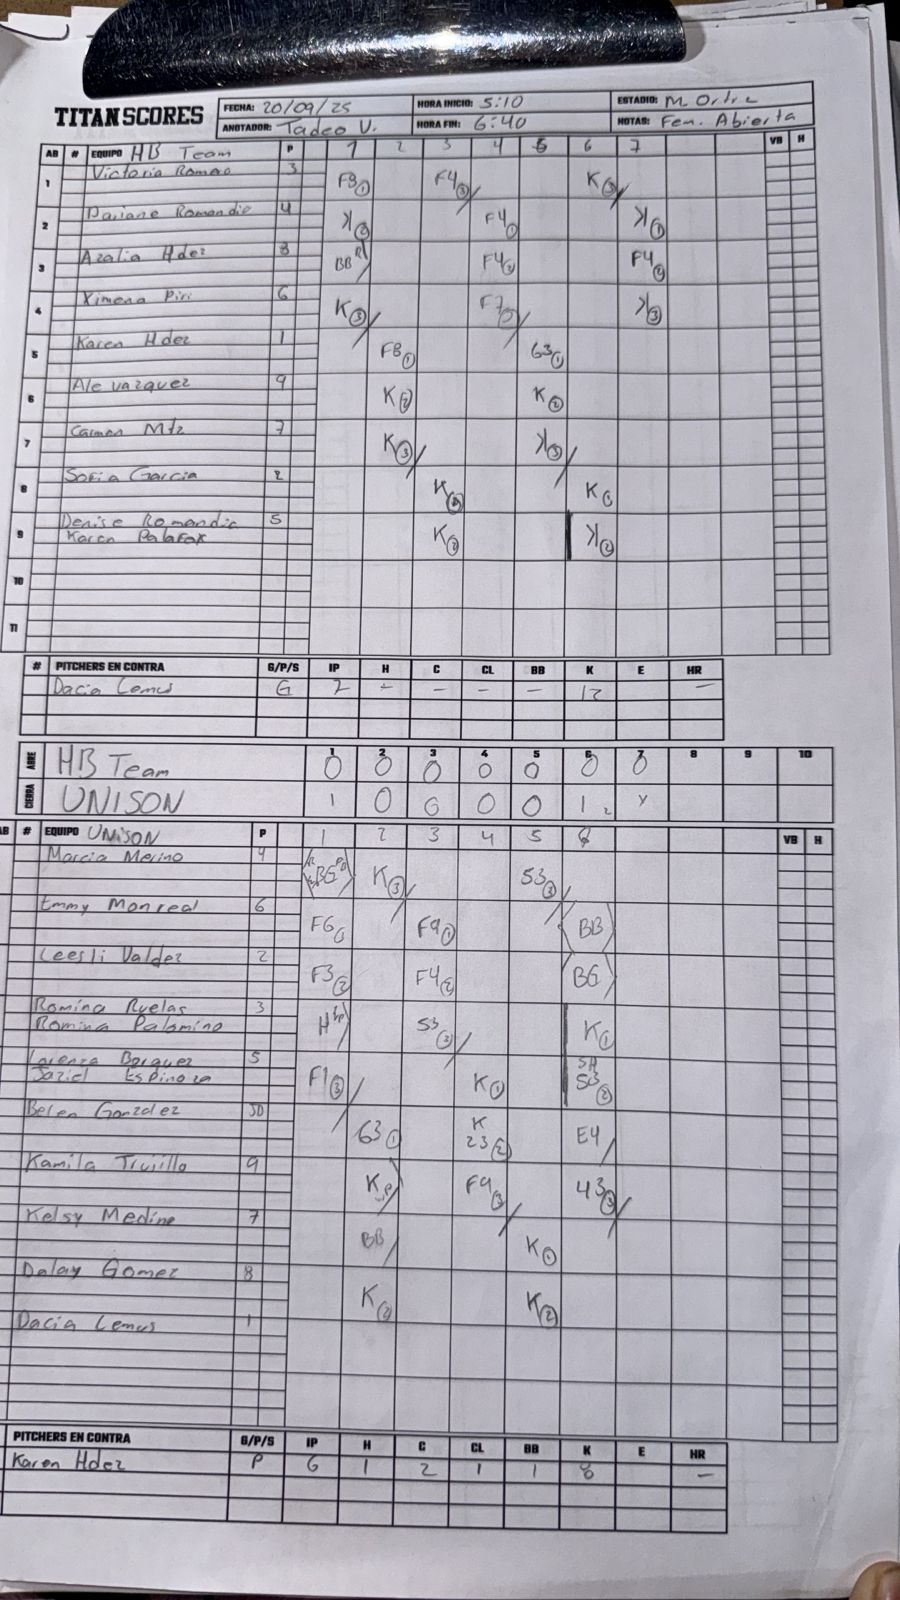 TITAN SCORES
FECHA: 20/09/25 HORA INICIO: 5:10 ESTADIO: M. Ortiz
ANOTADOR: Tadeo V. HORA FIN: 6:40 NOTAS: Fem. Abierta
AB # EQUIPO HB Team P 1 2 3 4 5 6 7 VB H
1 Victoria Romero 3 F8① F4③ K③
2 Dariane Romandic 4 K② F4① K①
3 Azalia Hdez 8 BB F4② F4②
4 Ximena Piri 6 K③ F7③ K③
5 Karen Hdez 1 F8① 63①
6 Ale Vazquez 9 K② K②
7 Carmen Mtz 7 K③ K③
8 Sofia Garcia 2 K K①
9 Denise Romandic 5 K② K②
Karen Palafox
10
11
# PITCHERS EN CONTRA G/P/S IP H C CL BB K E HR
Dacia Lemus G 7 - - - - 12 -
1 2 3 4 5 6 7 8 9 10
ABRE HB Team 0 0 0 0 0 0 0
CIERRA UNISON 1 0 0 0 0 1 X
AB # EQUIPO UNISON P 1 2 3 4 5 6 VB H
Marcia Merino 4 K③ 53③
Emmy Monreal 6 F6① F9① BB
Leesli Valdez 2 F3② F4② BG
Romina Ruelas 3 H 53③ K①
Romina Palomino
Lorenza Borquez 5 F1③ K① SH 53②
Jaziel Espinoza
Belen Gonzalez 63① K 23② E4
Kamila Trujillo 9 K F9③ 43③
Kelsy Medina 7 BB K①
Dalay Gomez 8 K② K②
Dacia Lemus 1
PITCHERS EN CONTRA G/P/S IP H C CL BB K E HR
Karen Hdez P 6 1 2 1 1 8 -